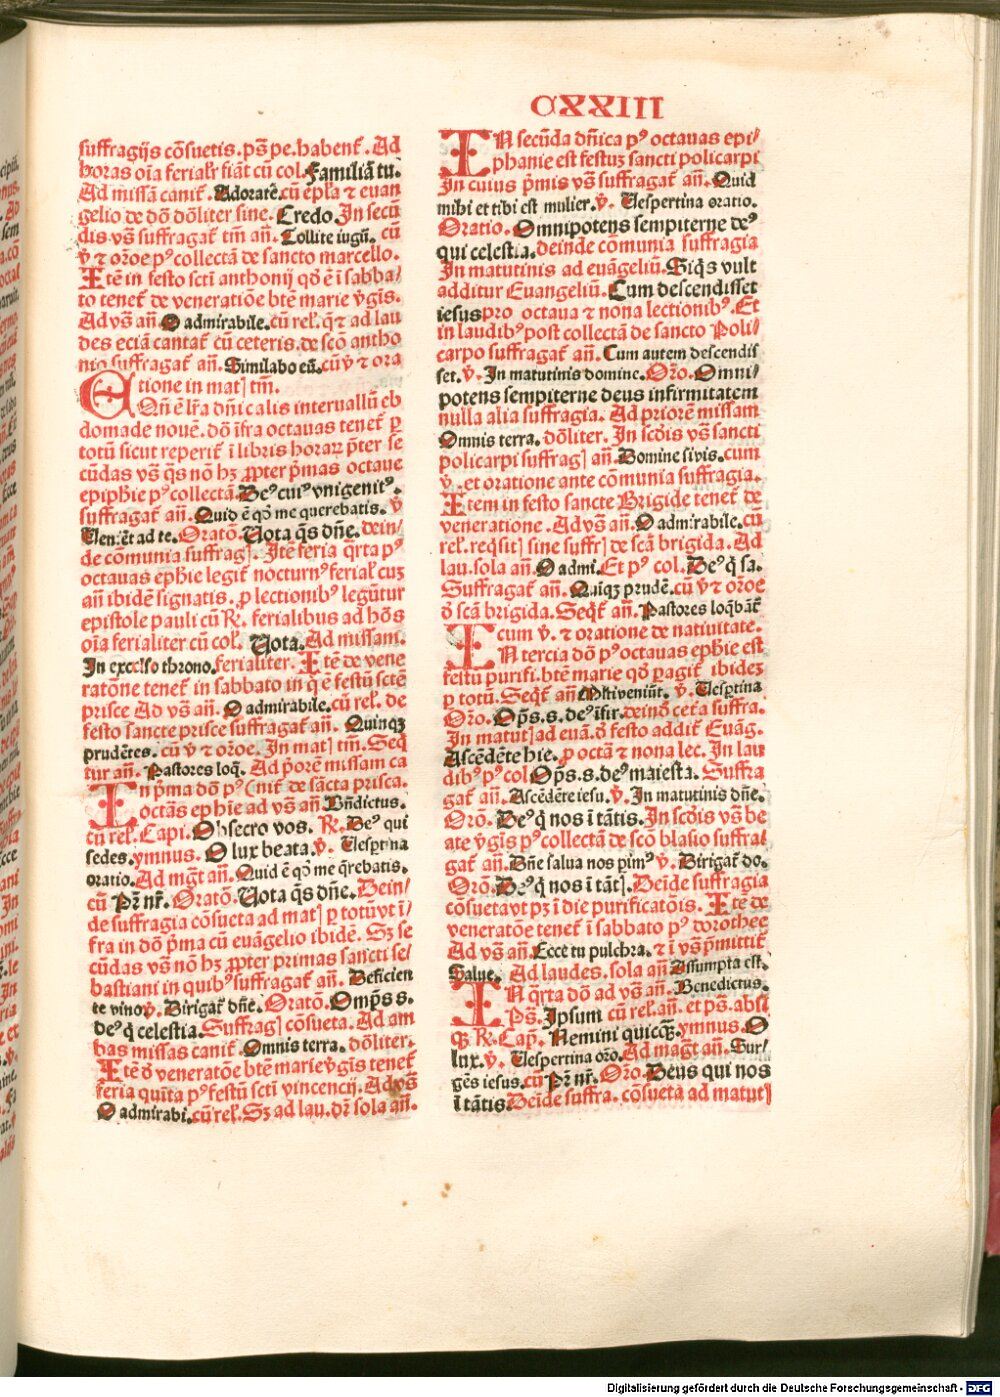 CXXIII
suffragijs cōsuetis. ps̄ pe. habent̄. Ad
horas oīa ferialr̄ fiāt cū col. Familiā tu.
Ad missā canit̄. Adorate. cū epl̄a ⁊ euan
gelio de dō dōliter sine. Credo. In secū
dis vs̄ suffragat̄ tm̄ an̄. Tollite iugū. cū
v̄ ⁊ or̄oe pꝰ collectā de sancto marcello.
Itē in festo scti anthonij qō ē ī sabba/
to tenet̄ de veneratiōe btē marie v̄gīs.
Ad vs̄ an̄. O admirabile. cū rel̄. q̄ ⁊ ad lau
des eciā cantat̄ cū ceteris. de scō antho
nio suffragat̄ an̄. Similabo eū. cū v̄ ⁊ ora
tione in mat] tm̄.
Qn̄ ē lr̄a dn̄icalis interuallū eb
domade nouē. dō īfra octauas tenet̄ ꝑ
totū sicut reperit̄ ī libris horaꝝ pn̄ter se
cūdas vs̄ q̄s nō hꝫ ꝓpter pmas octaue
epiphīe pꝰ collectā. Deꝰ cuiꝰ vnigenitꝰ.
suffragat̄ an̄. Quid ē qō me querebatis. v̄
de cōmunia suffrag]. Itē feria q̄rta pꝰ
octauas epħie legit̄ nocturnꝰ ferial̄ cuꝫ
an̄ ibidē signatis. ꝓ lectionibꝰ legūtur
epistole pauli cū R̄. ferialibus ad hōs
oīa ferialiter cū col̄. Vota. Ad missam.
In excelso throno. ferialiter. Itē de vene
ratōne tenet̄ in sabbato in q̄ ē festū sctē
prisce Ad vs̄ an̄. O admirabile. cū rel̄. de
festo sancte prisce suffragat̄ an̄. Quinqꝫ
prudētes. cū v̄ ⁊ or̄oe. In mat] tm̄. Seq̄
tur an̄. Pastores loq̄. Ad pōrē missam ca
In pma dō pꝰ (nit̄ de sācta prisca.
octās epħie ad vs̄ an̄ Bn̄dictus.
cū rel̄. Capi. Obsecro vos. R̄. Deꝰ qui
sedes. ymnus. O lux beata. v̄. Vesꝑtina
oratio. Ad mgt̄ an̄. Quid ē qō me q̄rebatis.
cū Pr̄ nr̄. Oratō. Vota q̄s dn̄e. Dein/
de suffragia cōsueta ad mat] ꝑ totū vt ī/
fra in dō pma cū euāgelio ibidē. Sꝫ se
cūdas vs̄ nō hꝫ ꝓpter primas sancti se/
bastiani in quibꝰ suffragat̄ an̄. Deficien
te vino v̄. Dirigat̄ dn̄e. Oratō. Omp̄s s.
deꝰ q̄ celestia. Suffrag] cōsueta. Ad am
bas missas canit̄. Omnis terra. dōliter.
Itē ō veneratōe btē marie v̄gīs tenet̄
feria quīta pꝰ festū scti vincencij. Ad vs̄
O admirabi. cū rel̄. Sꝫ ad lau. dr̄ sola an̄.
In secūda dn̄ica pꝰ octauas epi/
phanie est festuꝫ sancti policarpi
In cuius pmis vs̄ suffragat̄ an̄. Quid
mihi et tibi est mulier. v̄. Vespertina oratio.
Oratio. Omnipotens sempiterne deꝰ
qui celestia. deinde cōmunia suffragia
In matutinis ad euāgeliū. Siq̄s vult
additur Euangeliū. Cum descendisset
iesus pro octaua ⁊ nona lectionibꝰ. Et
in laudibꝰ post collectā de sancto Poli/
carpo suffragat̄ an̄. Cum autem descendis
set. v̄. In matutinis domine. Or̄o. Omni/
potens sempiterne deus infirmitatem
nulla alia suffragia. Ad priorē missam
Omnis terra. dōliter. In scdīs vs̄ sancti
policarpi suffrag] an̄. Domine si vis. cum
v̄. et oratione ante cōmunia suffragia.
Item in festo sancte Brigide tenet̄ de
veneratione. Ad vs̄ an̄. O admirabile. cū
rel̄. reqsit] sine suffr] de scā brigida. Ad
lau. sola an̄. O admi. Et pꝰ col. Deꝰ q̄ sa.
Suffragat̄ an̄. Quiqꝫ prudē. cū v̄ ⁊ or̄oe
ō scā brigida. Seqt̄ an̄. Pastores loq̄bāt̄
cum v̄. ⁊ oratione de natiuitate.
In tercia dō pꝰ octauas epħie est
festū purifi. btē marie qō pagit̄ ibideꝫ
ꝑ totū. Seqt̄ an̄ Mlti veniūt. v̄. Vesꝑtina
Or̄o. Op̄s. s. deꝰ īfir. deinō cet̄a suffra.
In matut] ad euā. ō festo addit̄ Euāg.
Ascēdēte hie. ꝓ octā ⁊ nona lec. In lau
dibꝰ pꝰ col Op̄s. s. deꝰ maiesta. Suffra
gat̄ an̄. Ascēdēte iesu. v̄. In matutinis dn̄e.
Orō. Deꝰ q̄ nos ī tātis. In scdīs vs̄ be
ate v̄gīs pꝰ collectā de scō blasio suffra/
gat̄ an̄. Dn̄e salua nos pimꝰ v̄. Dirigat̄ do.
Orō. Deꝰ q̄ nos ī tāt]. Deīde suffragia
cōsueta vt pꝫ ī die purificatōis. Itē de
veneratōe tenet̄ ī sabbato pꝰ dorothee
Ad vs̄ an̄. Ecce tu pulchra. ⁊ ī vs̄ pmittit̄
Salue. Ad laudes. sola an̄ Assumpta est.
In q̄rta dō ad vs̄ an̄. Benedictus.
Ps̄. Ipsum cū rel̄. an̄. et ps̄. absī
qꝫ R̄. Cap. Nemini quicq̄. ymnus. O
lux. v̄. Vespertina or̄o. Ad magt̄ an̄. Sur/
gēs iesus. cū Pr̄ nr̄. Or̄o. Deus qui nos
ī tātis. Deīde suffra. cōsueta ad matut]
Digitalisierung gefördert durch die Deutsche Forschungsgemeinschaft - DFG